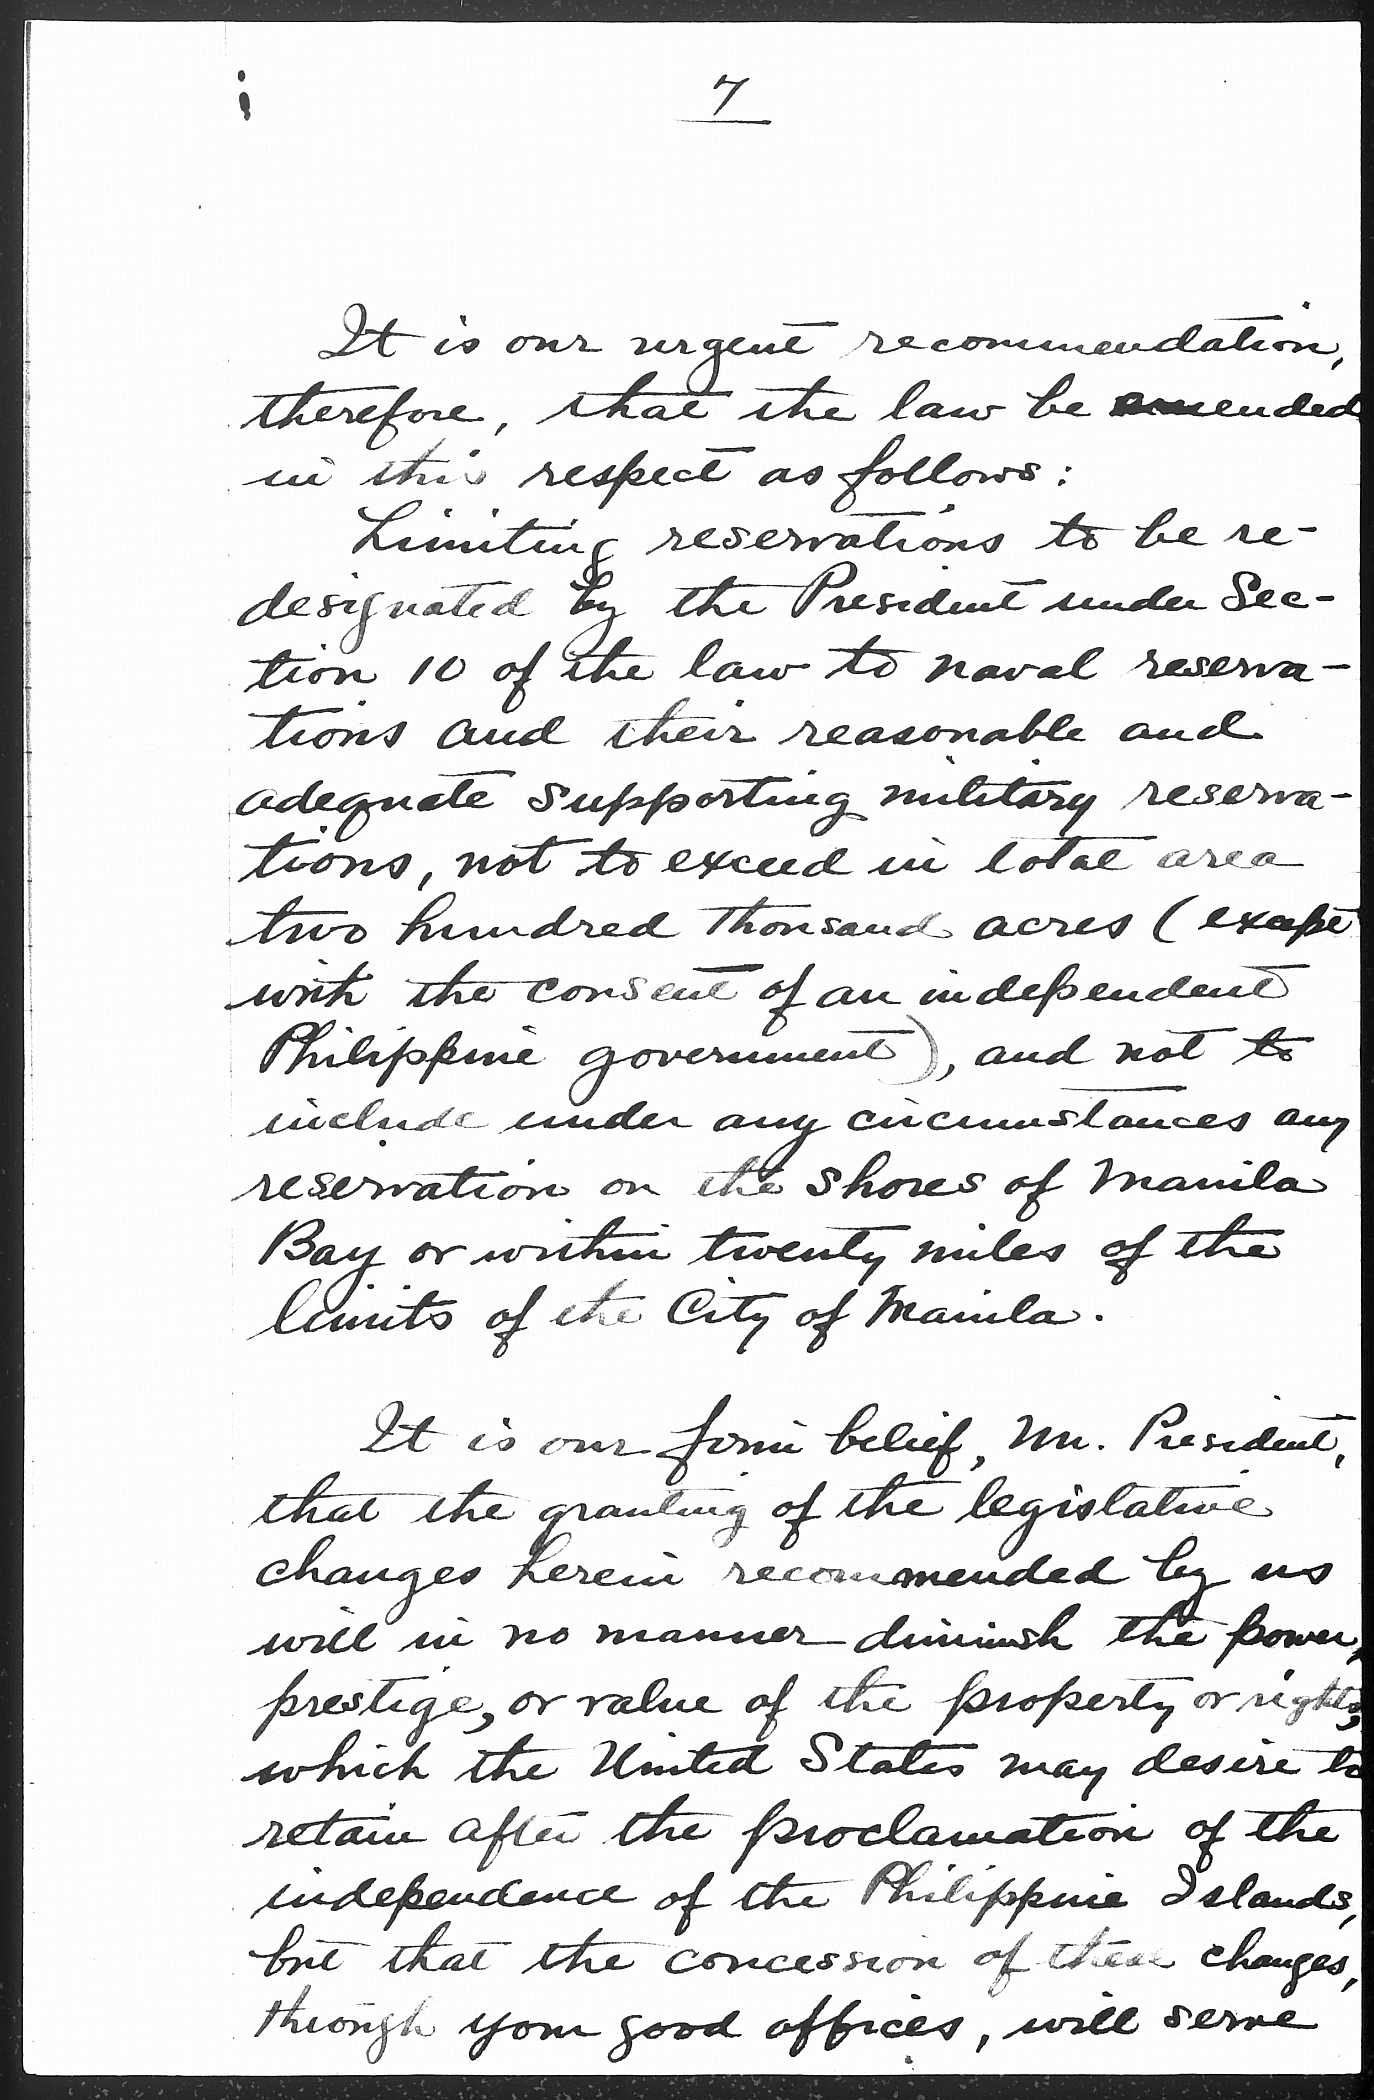 7
It is our urgent recommendation,
therefore, that the law be amended
in this respect as follows:
Limiting reservations to be re-
designated by the President under Sec-
tion 10 of the law to naval reserva-
tions and their reasonable and
adequate supporting military reserva-
tions, not to exceed in total area
two hundred thousand acres (except
with the consent of an independent
Philippine government), and not to
include under any circumstances any
reservation on the shores of Manila
Bay or within twenty miles of the
limits of the City of Manila.
It is our firm belief, Mr. President,
that the granting of the legislative
changes herein recommended by us
will in no manner diminish the power,
prestige, or value of the property or rights,
which the United States may desire to
retain after the proclamation of the
independence of the Philippine Islands,
but that the concession of these changes,
through your good offices, will serve